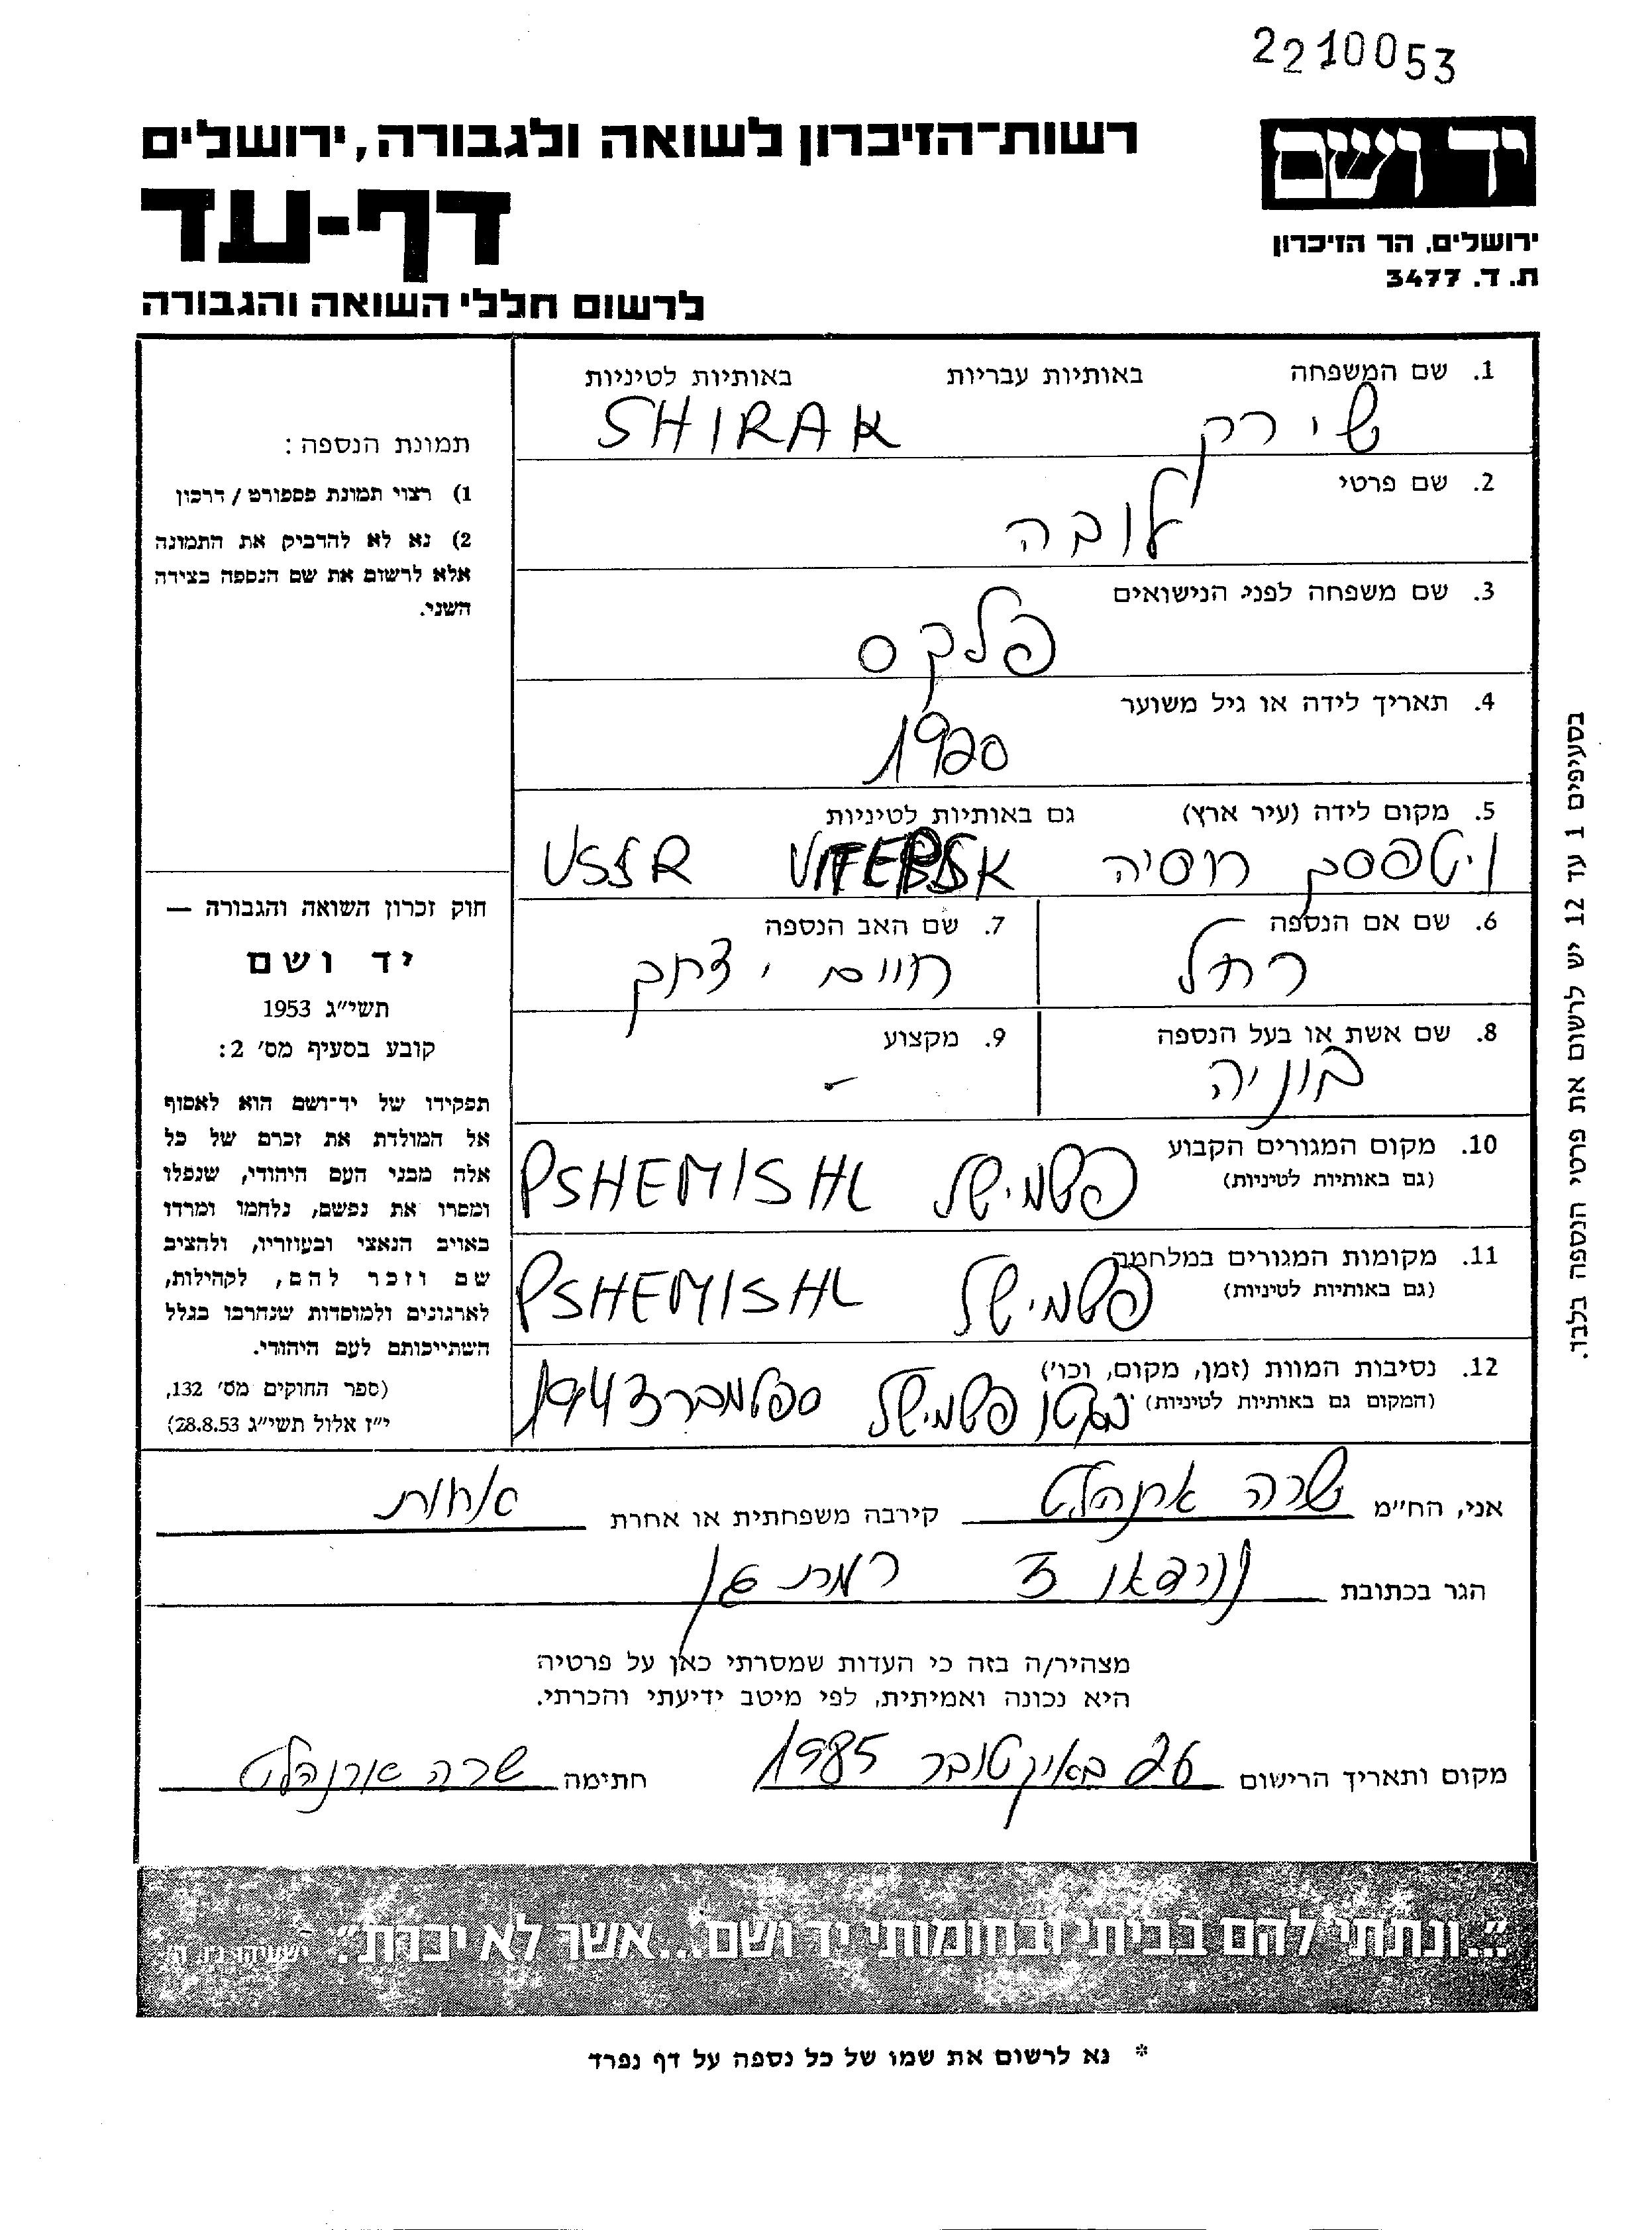 2210053
רשות-הזיכרון לשואה ולגבורה, ירושלים
יד ושם
דף-עד
ירושלים, הר הזיכרון
ת.ד. 3477
לרשום חללי השואה והגבורה
1. שם המשפחה באותיות עבריות באותיות לטיניות
שירק SHIRAK
2. שם פרטי
לובה
3. שם משפחה לפני הנישואים
פלקס
4. תאריך לידה או גיל משוער
1920
5. מקום לידה (עיר ארץ) גם באותיות לטיניות
ויטפסק רוסיה VITEBSK USSR
6. שם אם הנספה
רחל
7. שם האב הנספה
חיים יצחק
8. שם אשת או בעל הנספה
בוניה
9. מקצוע
-
10. מקום המגורים הקבוע
(גם באותיות לטיניות)
פשמישל PSHEMISHL
11. מקומות המגורים במלחמה
(גם באותיות לטיניות)
פשמישל PSHEMISHL
12. נסיבות המוות (זמן, מקום, וכו')
(המקום גם באותיות לטיניות)
בגטו פשמישל ספטמבר 1943
תמונת הנספה:
1) רצוי תמונת פספורט / דרכון
2) נא לא להדביק את התמונה
אלא לרשום את שם הנספה בצידה
השני.
חוק זכרון השואה והגבורה —
יד ושם
תשי"ג 1953
קובע בסעיף מס' 2:
תפקידו של יד-ושם הוא לאסוף
אל המולדת את זכרם של כל
אלה מבני העם היהודי, שנפלו
ומסרו את נפשם, נלחמו ומרדו
באויב הנאצי ובעוזריו, ולהציב
שם וזכר להם, לקהילות,
לארגונים ולמוסדות שנחרבו בגלל
השתייכותם לעם היהודי.
(ספר החוקים מס' 132,
י"ז אלול תשי"ג 28.8.53)
בסעיפים 1 עד 12 יש לרשום את פרטי הנספה בלבד.
אני, הח"מ שרה קירבה משפחתית או אחרת אחות
הגר בכתובת 3 רמת גן
מצהיר/ה בזה כי העדות שמסרתי כאן על פרטיה
היא נכונה ואמיתית, לפי מיטב ידיעתי והכרתי.
מקום ותאריך הרישום 26 באוקטובר 1985 חתימה שרה
"...ונתתי להם בביתי ובחומותי יד ושם...אשר לא יכרת". ישעיהו נו, ה'
* נא לרשום את שמו של כל נספה על דף נפרד